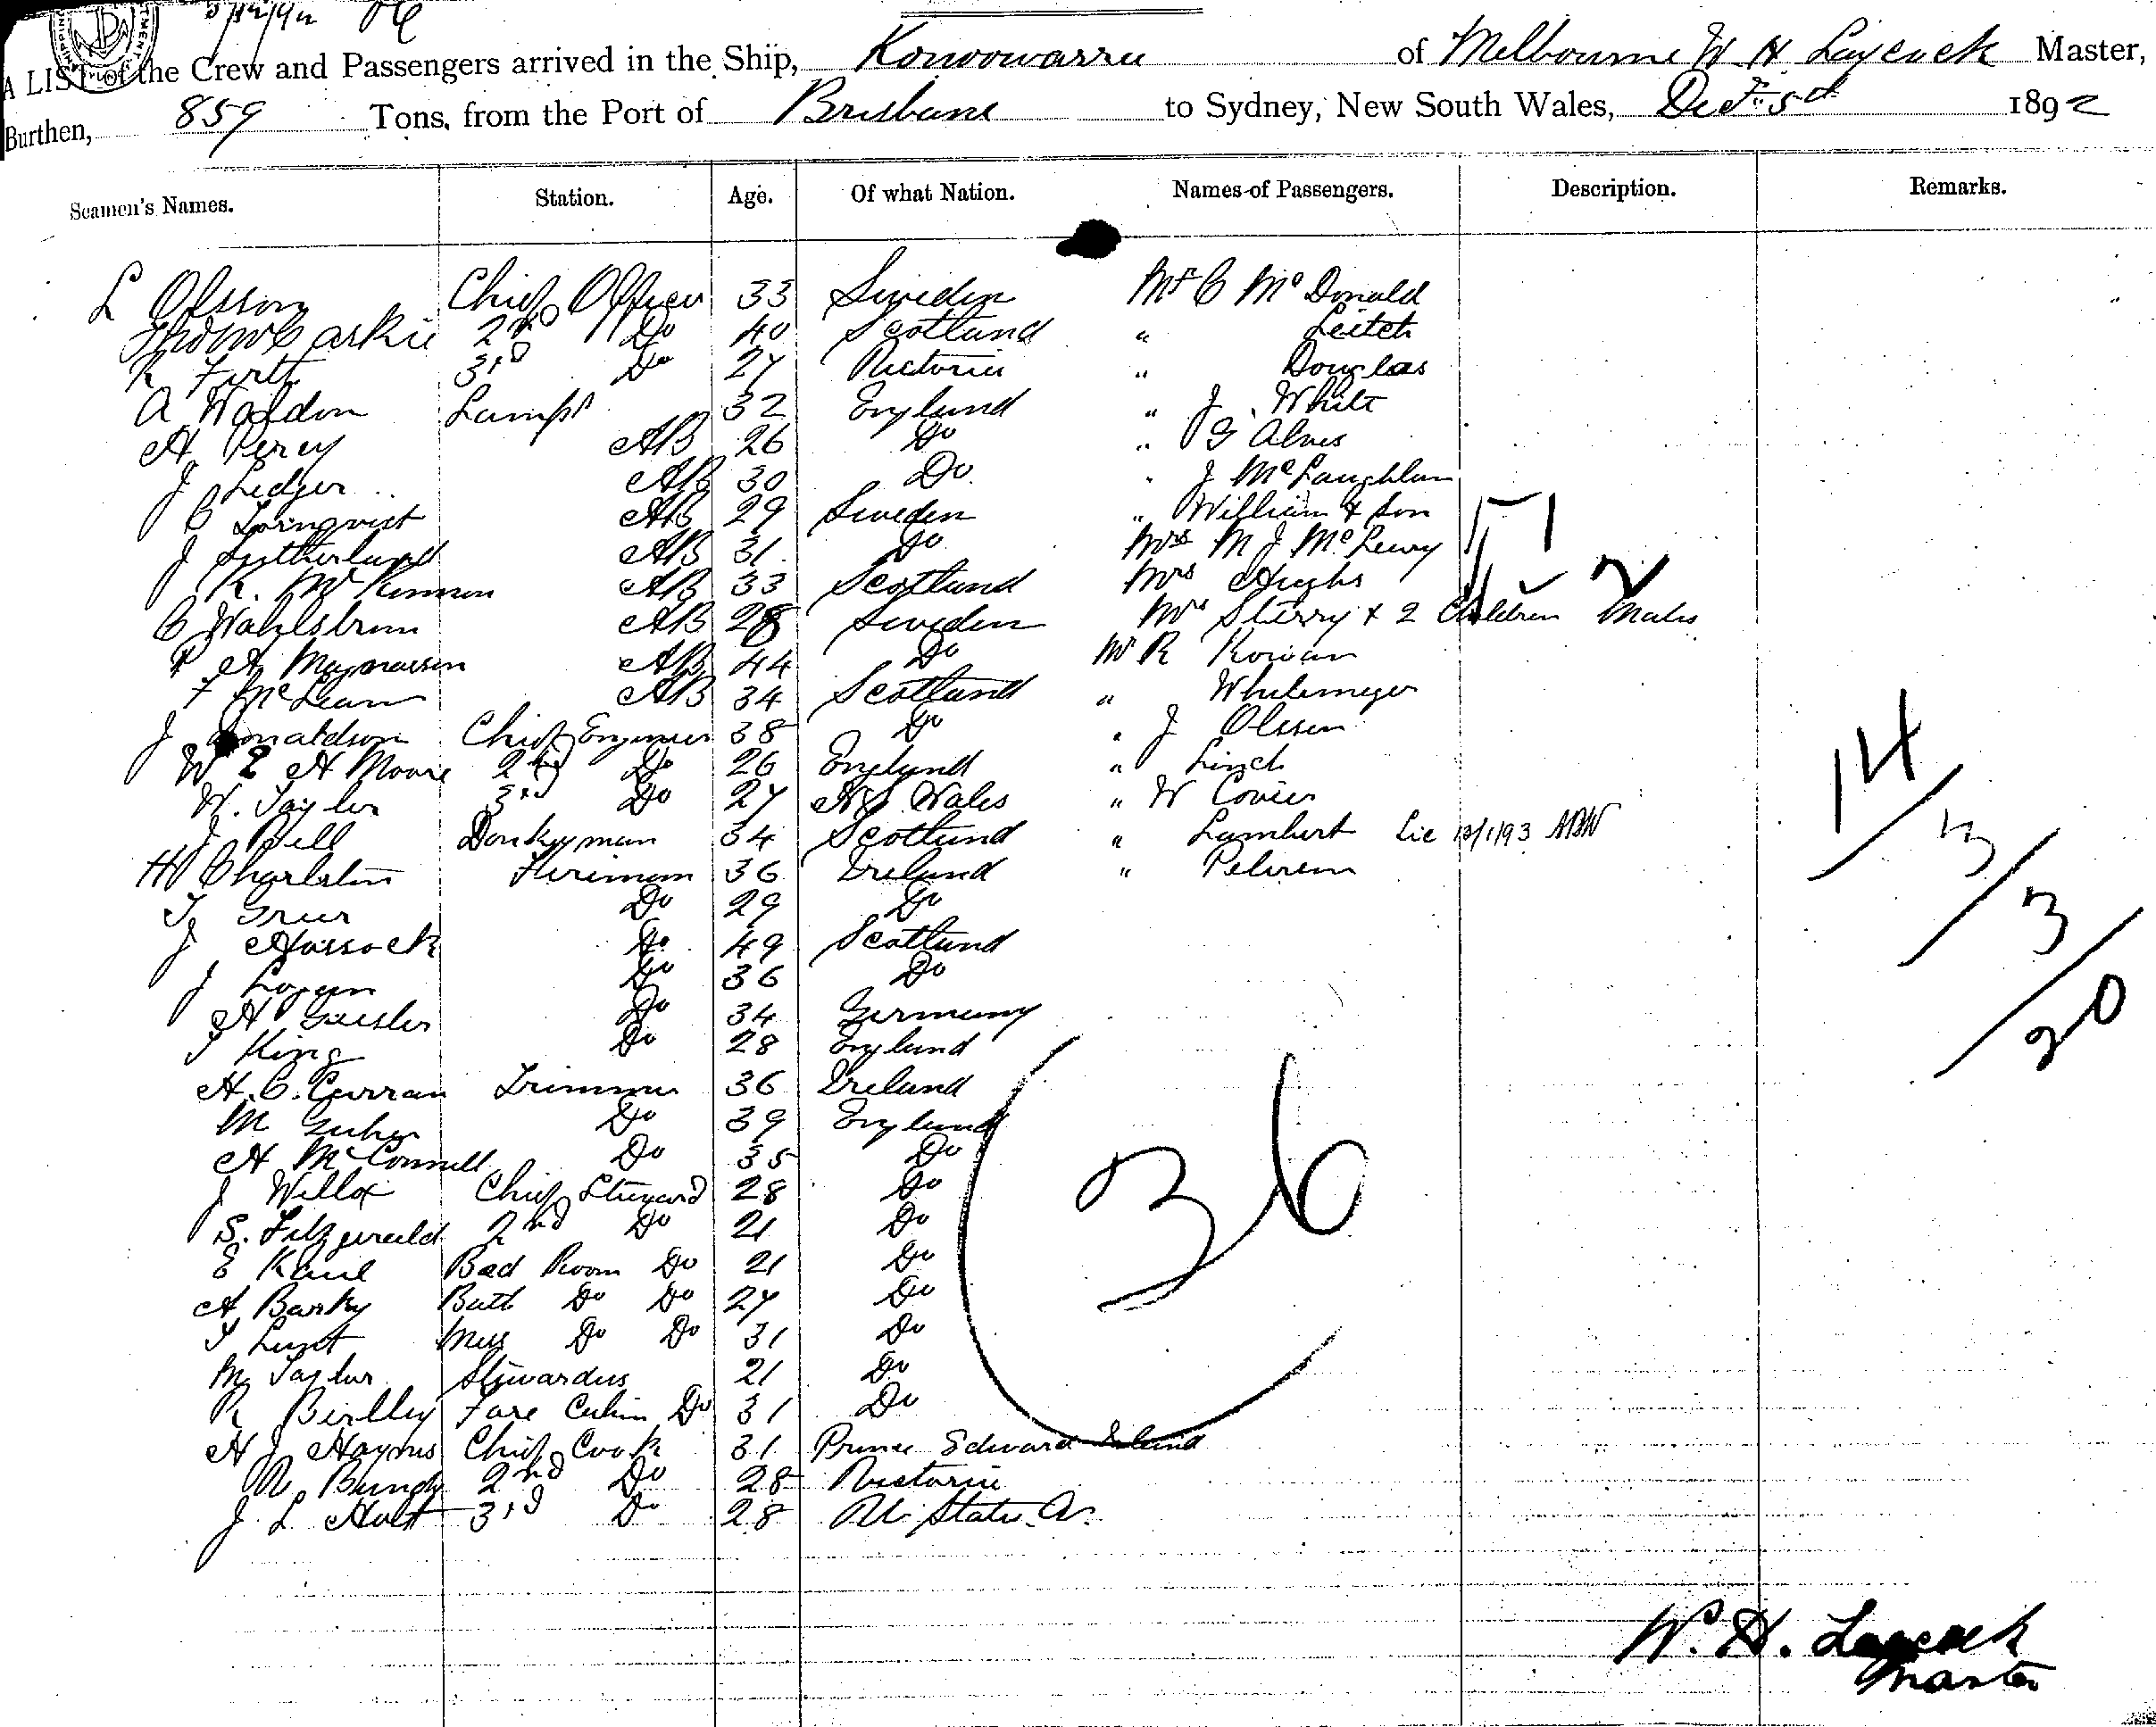 5/12/92
A LIST of the Crew and Passengers arrived in the Ship, Konoowarra of Melbourne W H Laycock Master,
Burthen, 859 Tons, from the Port of Brisbane to Sydney, New South Wales, Dec 5th 1892
Seamen's Names. Station. Age. Of what Nation. Names of Passengers. Description. Remarks.
L Olsson Chief Officer 33 Sweden Mr C McDonald
2nd Do 40 Scotland " Leitch
R Firth 3rd Do 27 Victoria " Douglas
A Waldon Lamps 32 England " J White
H Percy AB 26 Do " G Alves
J Ledger AB 30 Do " J McLaughlan
C Tornqvist AB 29 Sweden " William & Son 1
J Sutherland AB 31 Do Mrs M J McLewy
K. McKinnon AB 33 Scotland Mrs Hughs 2
C Wahlstrom AB 28 Sweden Mrs Sterry & 2 Children Males
P A Magnussen AB 44 Do Mr R Rowan
F McLean AB 34 Scotland " Whitemeyer
J Donaldson Chief Engineer 38 Do " J Olssen
W E A Moore 2nd Do 26 England " Linch
W. Taylor 3rd Do 27 N S Wales " W
J Bell Donkeyman 34 Scotland " Lambert Lie 13/1/93
H Charleston Fireman 36 Ireland " Petersen
T Greer Do 29 Do
J Hassock Do 49 Scotland
J Logan Do 36 Do
H Geisler Do 34 Germany
J King Do 28 England
H. C. Curran Trimmer 36 Ireland
M Do 39 England
H McConnell Do 35 Do
J Willox Chief Steward 28 Do
S. Fitzgerald 2nd Do 21 Do
E Kane Bed Room Do 21 Do
A Barky Bath Do Do 27 Do
J Lunt Mess Do Do 31 Do
M Taylor Stewardess 21 Do
R Birtley Fore Cabin Do 31 Do
H J Haynes Chief Cook 31 Prince Edward Island
Bundy 2nd Do 28 Victoria
J L Holt 3rd Do 28 U. States A.
14/3/3/20
36
W. H. Laycock
Master